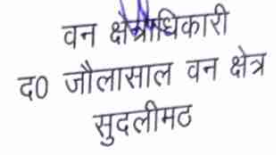 वन क्षेत्राधिकारी
द० जौलासाल वन क्षेत्र
सुदलीमठ